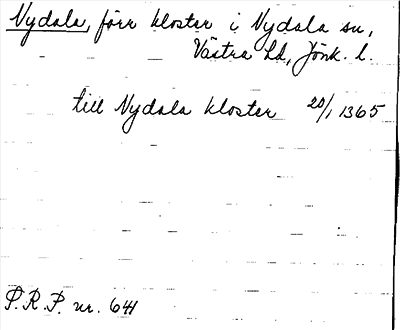 Nydala, förr kloster i Nydala sn,
Västra hd, Jönk. l.
till Nydala kloster 20/1 1365
P.R.P. nr. 641